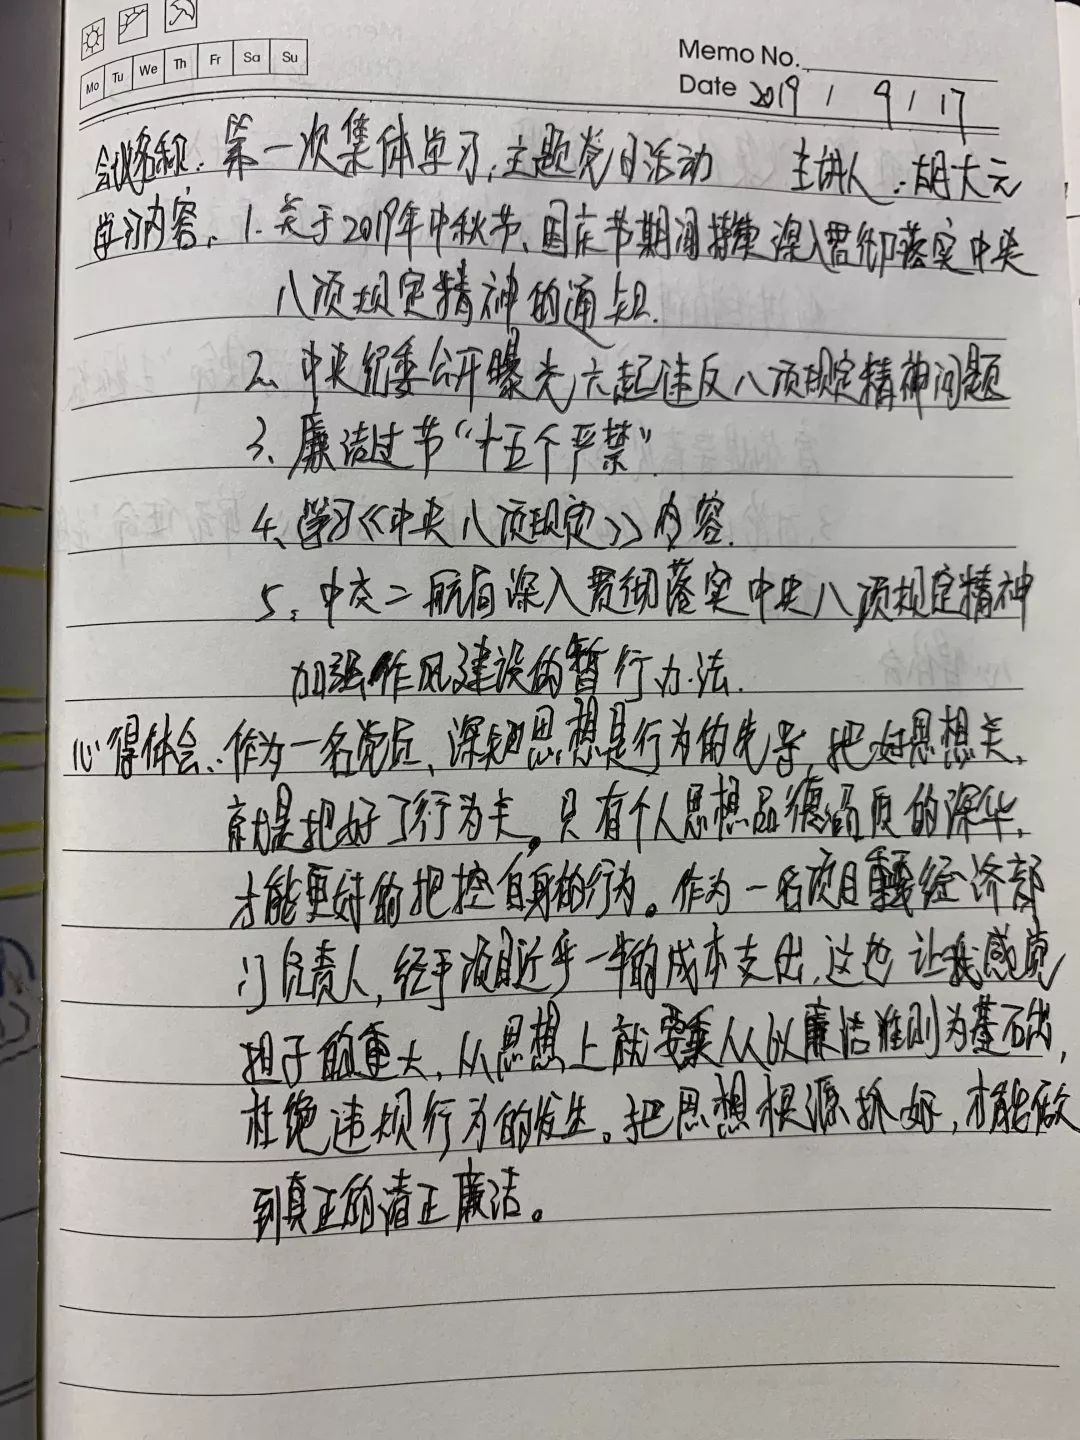 Mo Tu We Th Fr Sa Su
Memo No.
Date 2019 / 9 / 17
会议名称:第一次集体学习,主题党日活动 主讲人:胡大元
学习内容:1.关于2019年中秋节、国庆节期间持续深入贯彻落实中央
八项规定精神的通知.
2、中央纪委公开曝光六起违反八项规定精神问题
3、廉洁过节“十五个严禁”.
4、学习《中央八项规定》内容.
5、中交二航局深入贯彻落实中央八项规定精神
加强作风建设的暂行办法.
心得体会:作为一名党员、深知思想是行为的先导,把好思想关,
就是把好了行为关。只有个人思想品德品质的深华,
才能更好的把控自身的行为。作为一名项目经济部
门负责人,经手项目近乎一半的成本支出,这也让我感觉
担子的重大,从思想上就要以廉洁准则为基石出,
杜绝违规行为的发生。把思想根源抓好,才能做
到真正的清正廉洁。